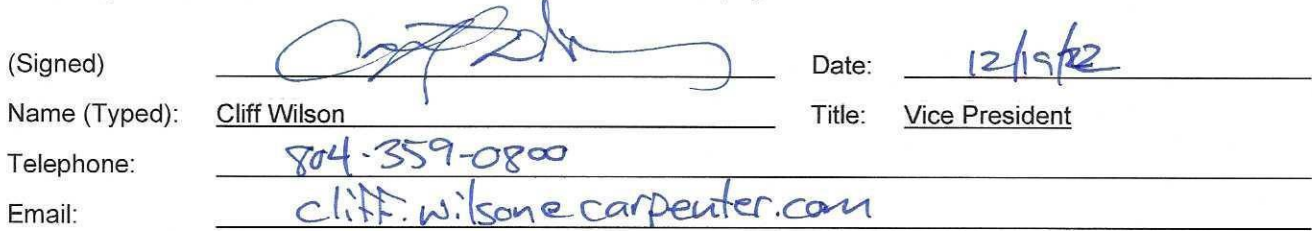 (Signed) Date: 12/19/22
Name (Typed): Cliff Wilson Title: Vice President
Telephone: 804-359-0800
Email: cliff.wilson@carpenter.com